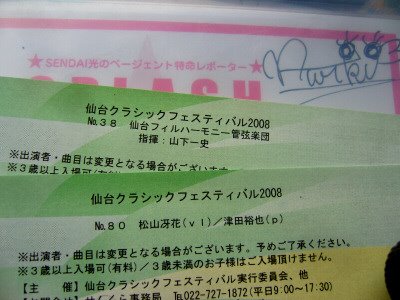 ★SENDAI光のページェント特命レポーター★
SPLASH
仙台クラシックフェスティバル2008
No.38 仙台フィルハーモニー管弦楽団
指揮:山下一史
※出演者・曲目は変更となる場合がございます
※3歳以上入場可(有
仙台クラシックフェスティバル2008
No.80 松山冴花(vl)/津田裕也(p)
※出演者・曲目は変更となる場合がございます。予めご了承ください。
※3歳以上入場可(有料)/3歳未満のお子様はご入場頂けません。
【主 催】仙台クラシックフェスティバル実行委員会、他
せんくら事務局 TEL022-727-1872(平日9:00~17:30)